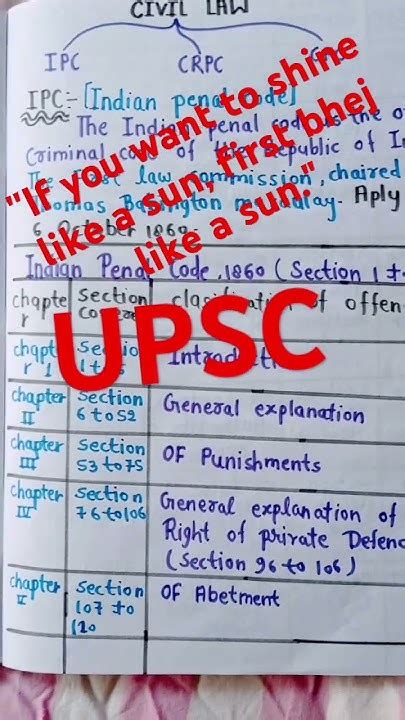 CIVIL LAW
IPC CRPC
IPC:- [Indian penal code]
The Indian penal code is the o
Criminal code of the Republic of I
The First law commission, chaired
Thomas Babington Aply
6 October 1860.
"If you want to shine
like a sun, first bhej
like a sun."
Indian Penal Code, 1860 (Section 1 t
chapte Section clasification of offen
r
UPSC
chapte Section Introduction
r 1
chapter Section General explanation
II 6 to 52
chapter Section OF Punishments
III 53 to 75
chapter Section General explanation of
IV 76 to 106 Right of private Defenc
(Section 96 to 106)
chapter Section OF Abetment
V 107 to
120